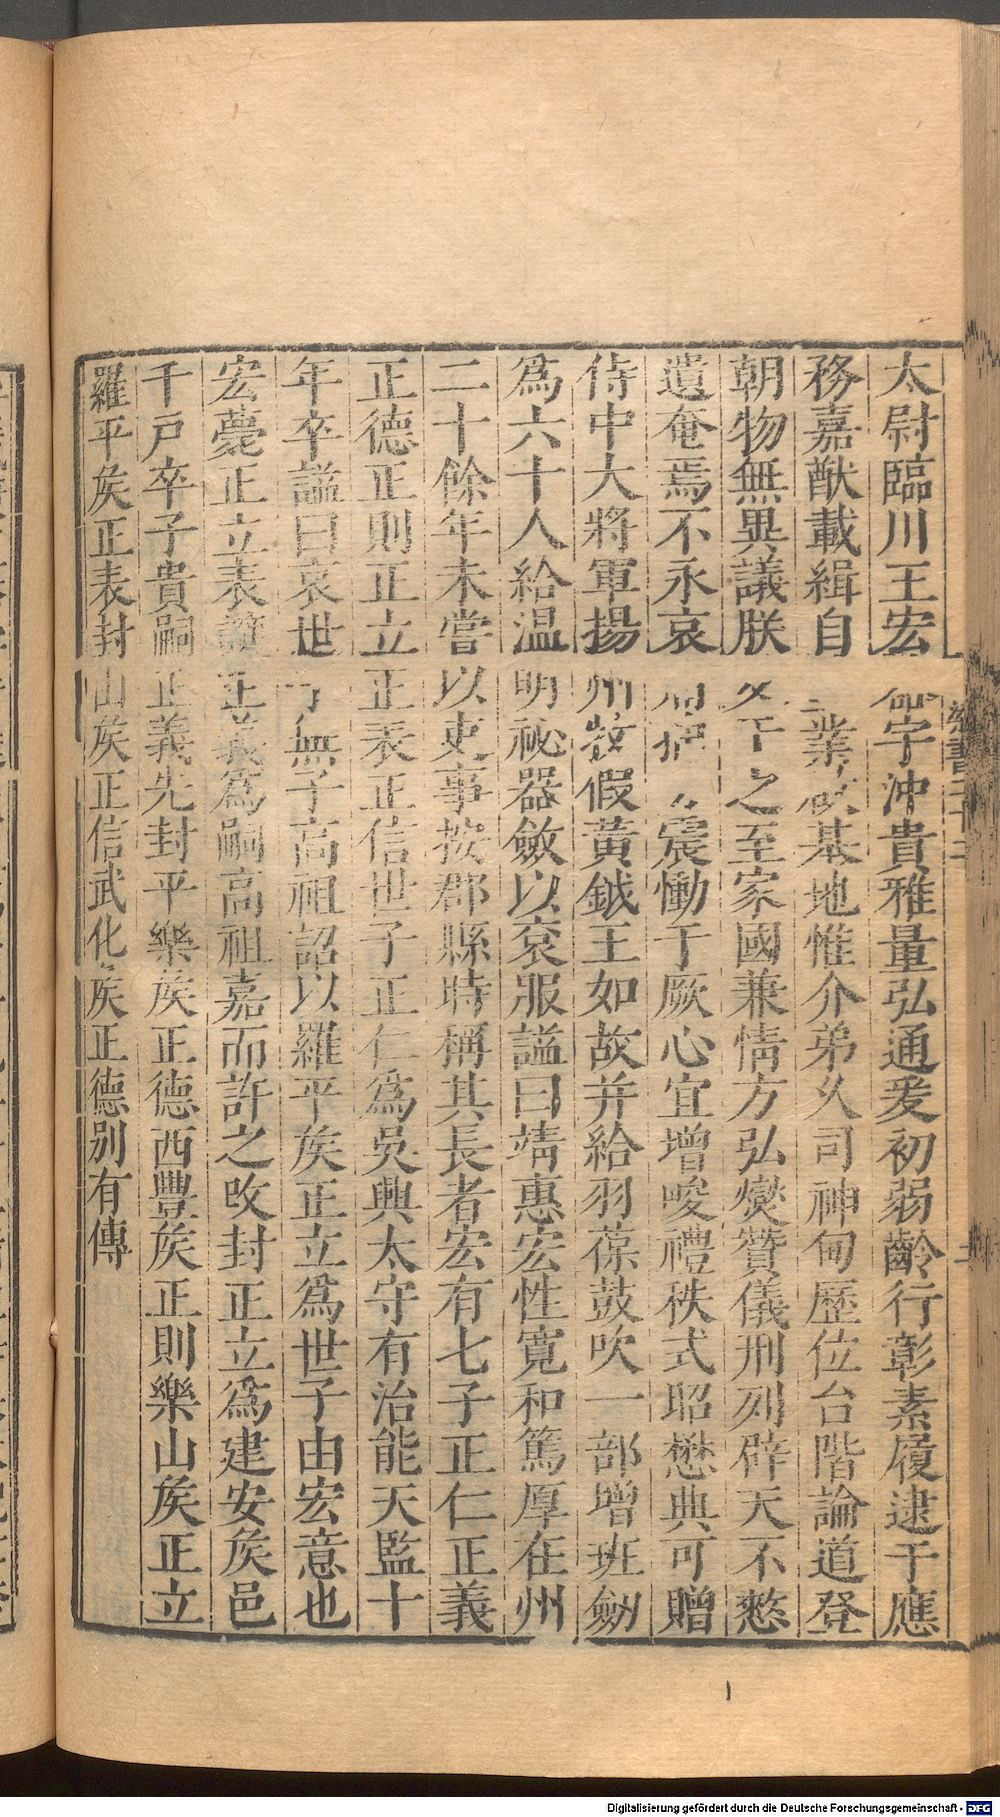 太尉臨川王宏器宇沖貴雅量弘通爰初弱齡行彰素履逮于應
務嘉猷載緝自皇業啟基地惟介弟久司神甸歷位台階論道登
朝物無異議朕友于之至家國兼情方弘燮贊儀刑列辟天不憖
遺奄焉不永哀痛抽切震慟于厥心宜增峻禮秩式昭懋典可贈
侍中大將軍揚州牧假黃鉞王如故并給羽葆鼓吹一部增班劒
爲六十人給温明祕器斂以衮服謚曰靖惠宏性寛和篤厚在州
二十餘年未嘗以吏事按郡縣時稱其長者宏有七子正仁正義
正德正則正立正表正信世子正仁爲吳興太守有治能天監十
年卒謚曰哀世子無子高祖詔以羅平矦正立爲世子由宏意也
宏薨正立表讓正義爲嗣高祖嘉而許之改封正立爲建安矦邑
千戸卒子賁嗣正義先封平樂矦正德西豐矦正則樂山矦正立
羅平矦正表封山矦正信武化矦正德别有傳
梁書二十二
Digitalisierung gefördert durch die Deutsche Forschungsgemeinschaft - DFG